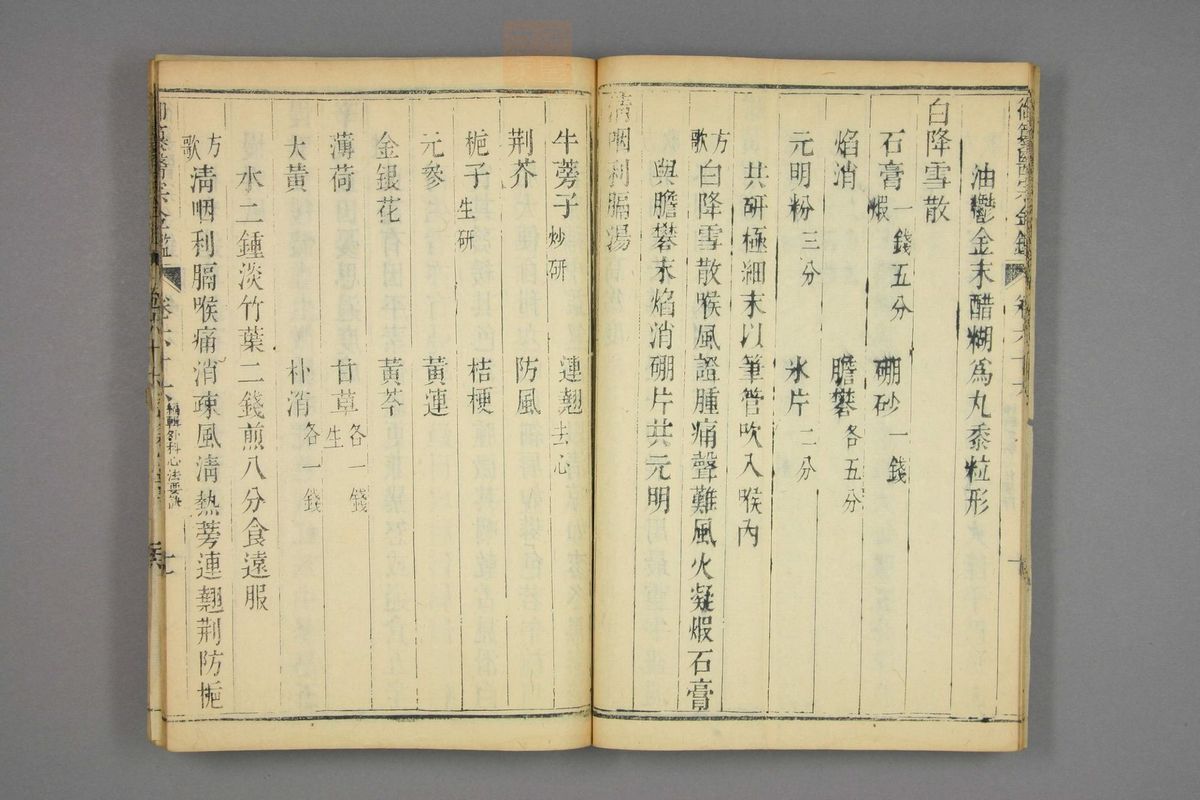 油鬱金末醋糊為丸黍粒形
白降雪散
石膏煅一錢五分 硼砂一錢
焰消 膽礬各五分
元明粉三分 氷片二分
共研極細末以筆管吹入喉內
方歌白降雪散喉風證腫痛聲難風火凝煅石膏
與膽礬末焰消硼片共元明
清咽利膈湯
牛蒡子炒研 連翹去心
荆芥 防風
梔子生研 桔梗
元參 黃連
金銀花 黃芩
薄荷 甘草生各一錢
大黃 朴消各一錢
水二鍾淡竹葉二錢煎八分食遠服
方歌清咽利膈喉痛消疎風清熱蒡連翹荆防梔
御纂醫宗金鑑 卷六十六 編輯外科心法要訣